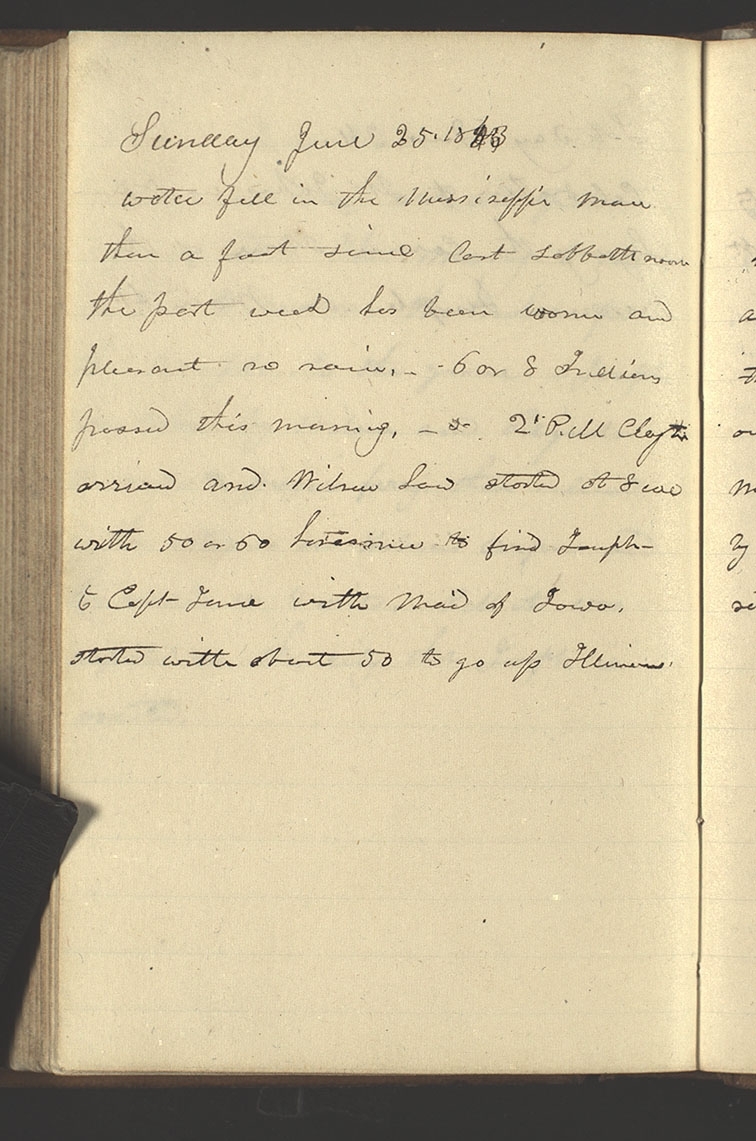 Sunday June 25. 1843
water fell in the Mississippi more
than a foot since last sabbath noon
the past week has been warm and
pleasant no rain. - 6 or 8 Indians
passed this morning. - 2 P.M Clayton
arrived and. Wilson Law started at 8 eve
with 50 or 60 horsemen to find Joseph -
& Capt Jone with Maid of Iowa.
started with about 50 to go up Illinois.
a
m
by